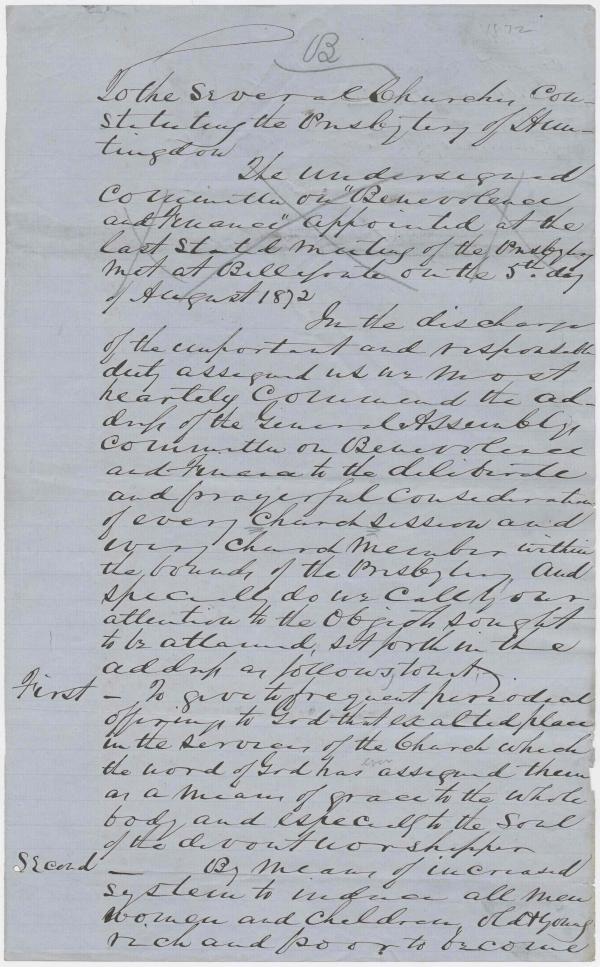 1872
B
To the Several Churches Con-
stituting the Presbytery of Hun-
tingdon
The undersigned
Committee on "Benevolence
and Finance" appointed at the
last Stated Meeting of the Presbytery
met at Bellefonte on the 5th day
of August 1872
In the discharge
of the important and responsible
duty assigned us we most
heartely Commend the ad-
dress of the General Assembly's
Committee on Benevolence
and Finance to the deliberate
and prayerful Consideration
of every Church Session and
every Church Member within
the bounds of the Presbytery, And
specially do we Call your
attention to the Objects sought
to be attained, set forth in the
address as follows, to wit,
First - To give to frequent periodical
offerings to God that exalted place
in the services of the Church which
the word of God has ever assigned them
as a means of grace to the whole
body and especially to the Soul
of the devout worshipper
Second - By means of increased
system to induce all men
women and children, old & young
rich and poor to become